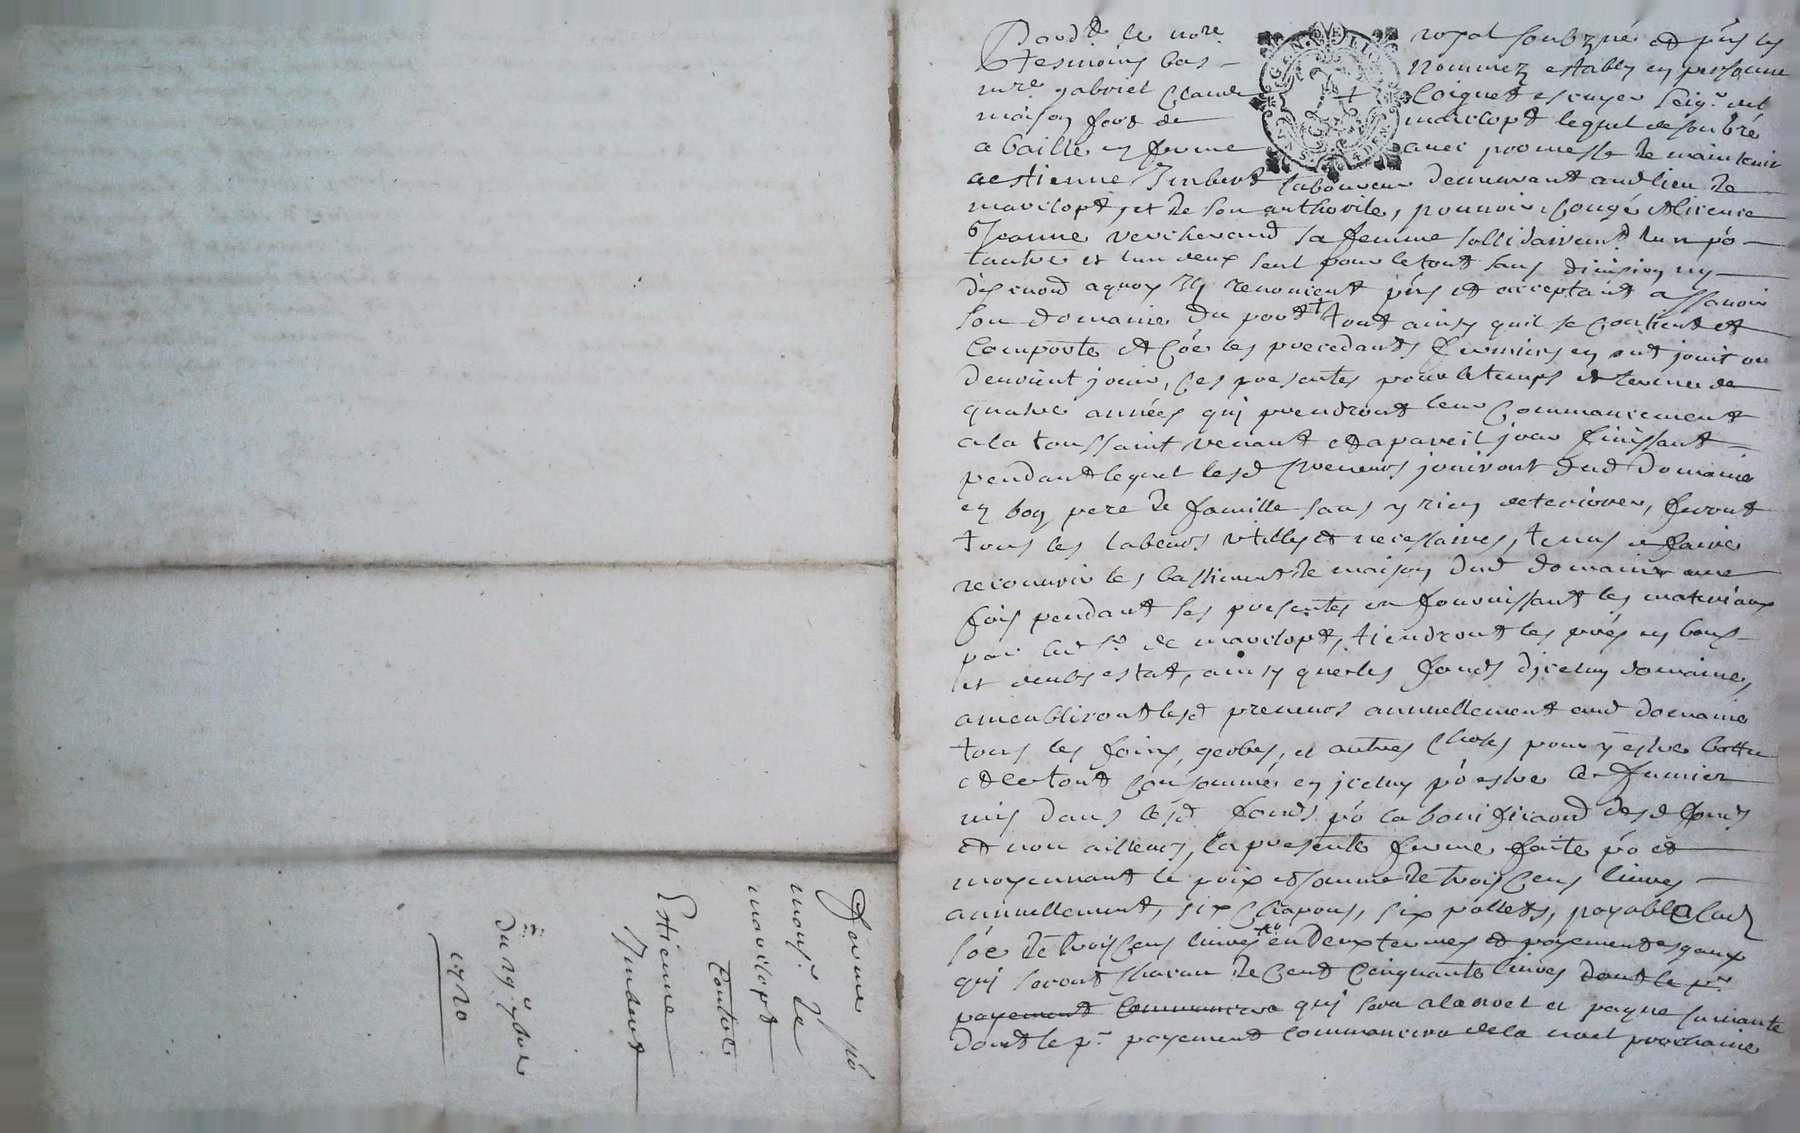 Pard.t le no.re royal soubzné et pñs les
tesmoins bas nommez estably en personne
m.re gabriel Claude Loignet escuyer seig.r de
maison fort de marclopt lequel de son bré
a baillé en ferme avec promesse de maintenir
a estienne Imbert laboureur demeurant aud lieu de
marclopt et de son authorite, pouvoir congé et licence
Jeanne vercherand sa femme sollidairem.t lun po
lautre et lun deux seul pour le tout sans division ny
discuon a quoy ils renoncent pñs et acceptant assavoir
son domaine du port tout ainsy quil se contient et
comporte et coe les precedants fermiers en ont jouit ou
devoient jouir, ces presentes pour le temps et terme de
quatre années qui prendront leur commancement
a la toussaint venant et a pareil jour finissant
pendant lequel lesd preneurs jouiront dud domaine
en bon pere de famille sans y rien deteriorer, feront
tous les labeurs utilles et necessaires, tenus de faire
recouvrir les bastiment de maison dud domaine une
fois pendant les presentes en fournissant les materiaux
par led s.r de marclopt, tiendront les prés en bons
et deubs estat, ainsy que les fonds diceluy domaine,
ameubliront lesd preneurs annuellement aud domaine
tous les foins, gerbes, et autres choses pour y estre battu
et le tout consommé en jceluy po estre le fumier
mis dans lesd fonds po la bonificaon desd fonds
et non ailleurs, la presente ferme faite po et
moyennant le prix et somme de trois cens livres
annuellement, six chapons, six pollets, payable lad
soe de trois cens livres en deux termes et payement esgaux
qui seront chacun de cent cinquante livres dont le p.r
payement commancera qui sera a la noel et pasque suivante
dont le p.r payement commancera de la noel prochaine
Ferme po
mons.r de
marclopt
Contre
Estienne
Imbert
Du 19.e 7bre
1720